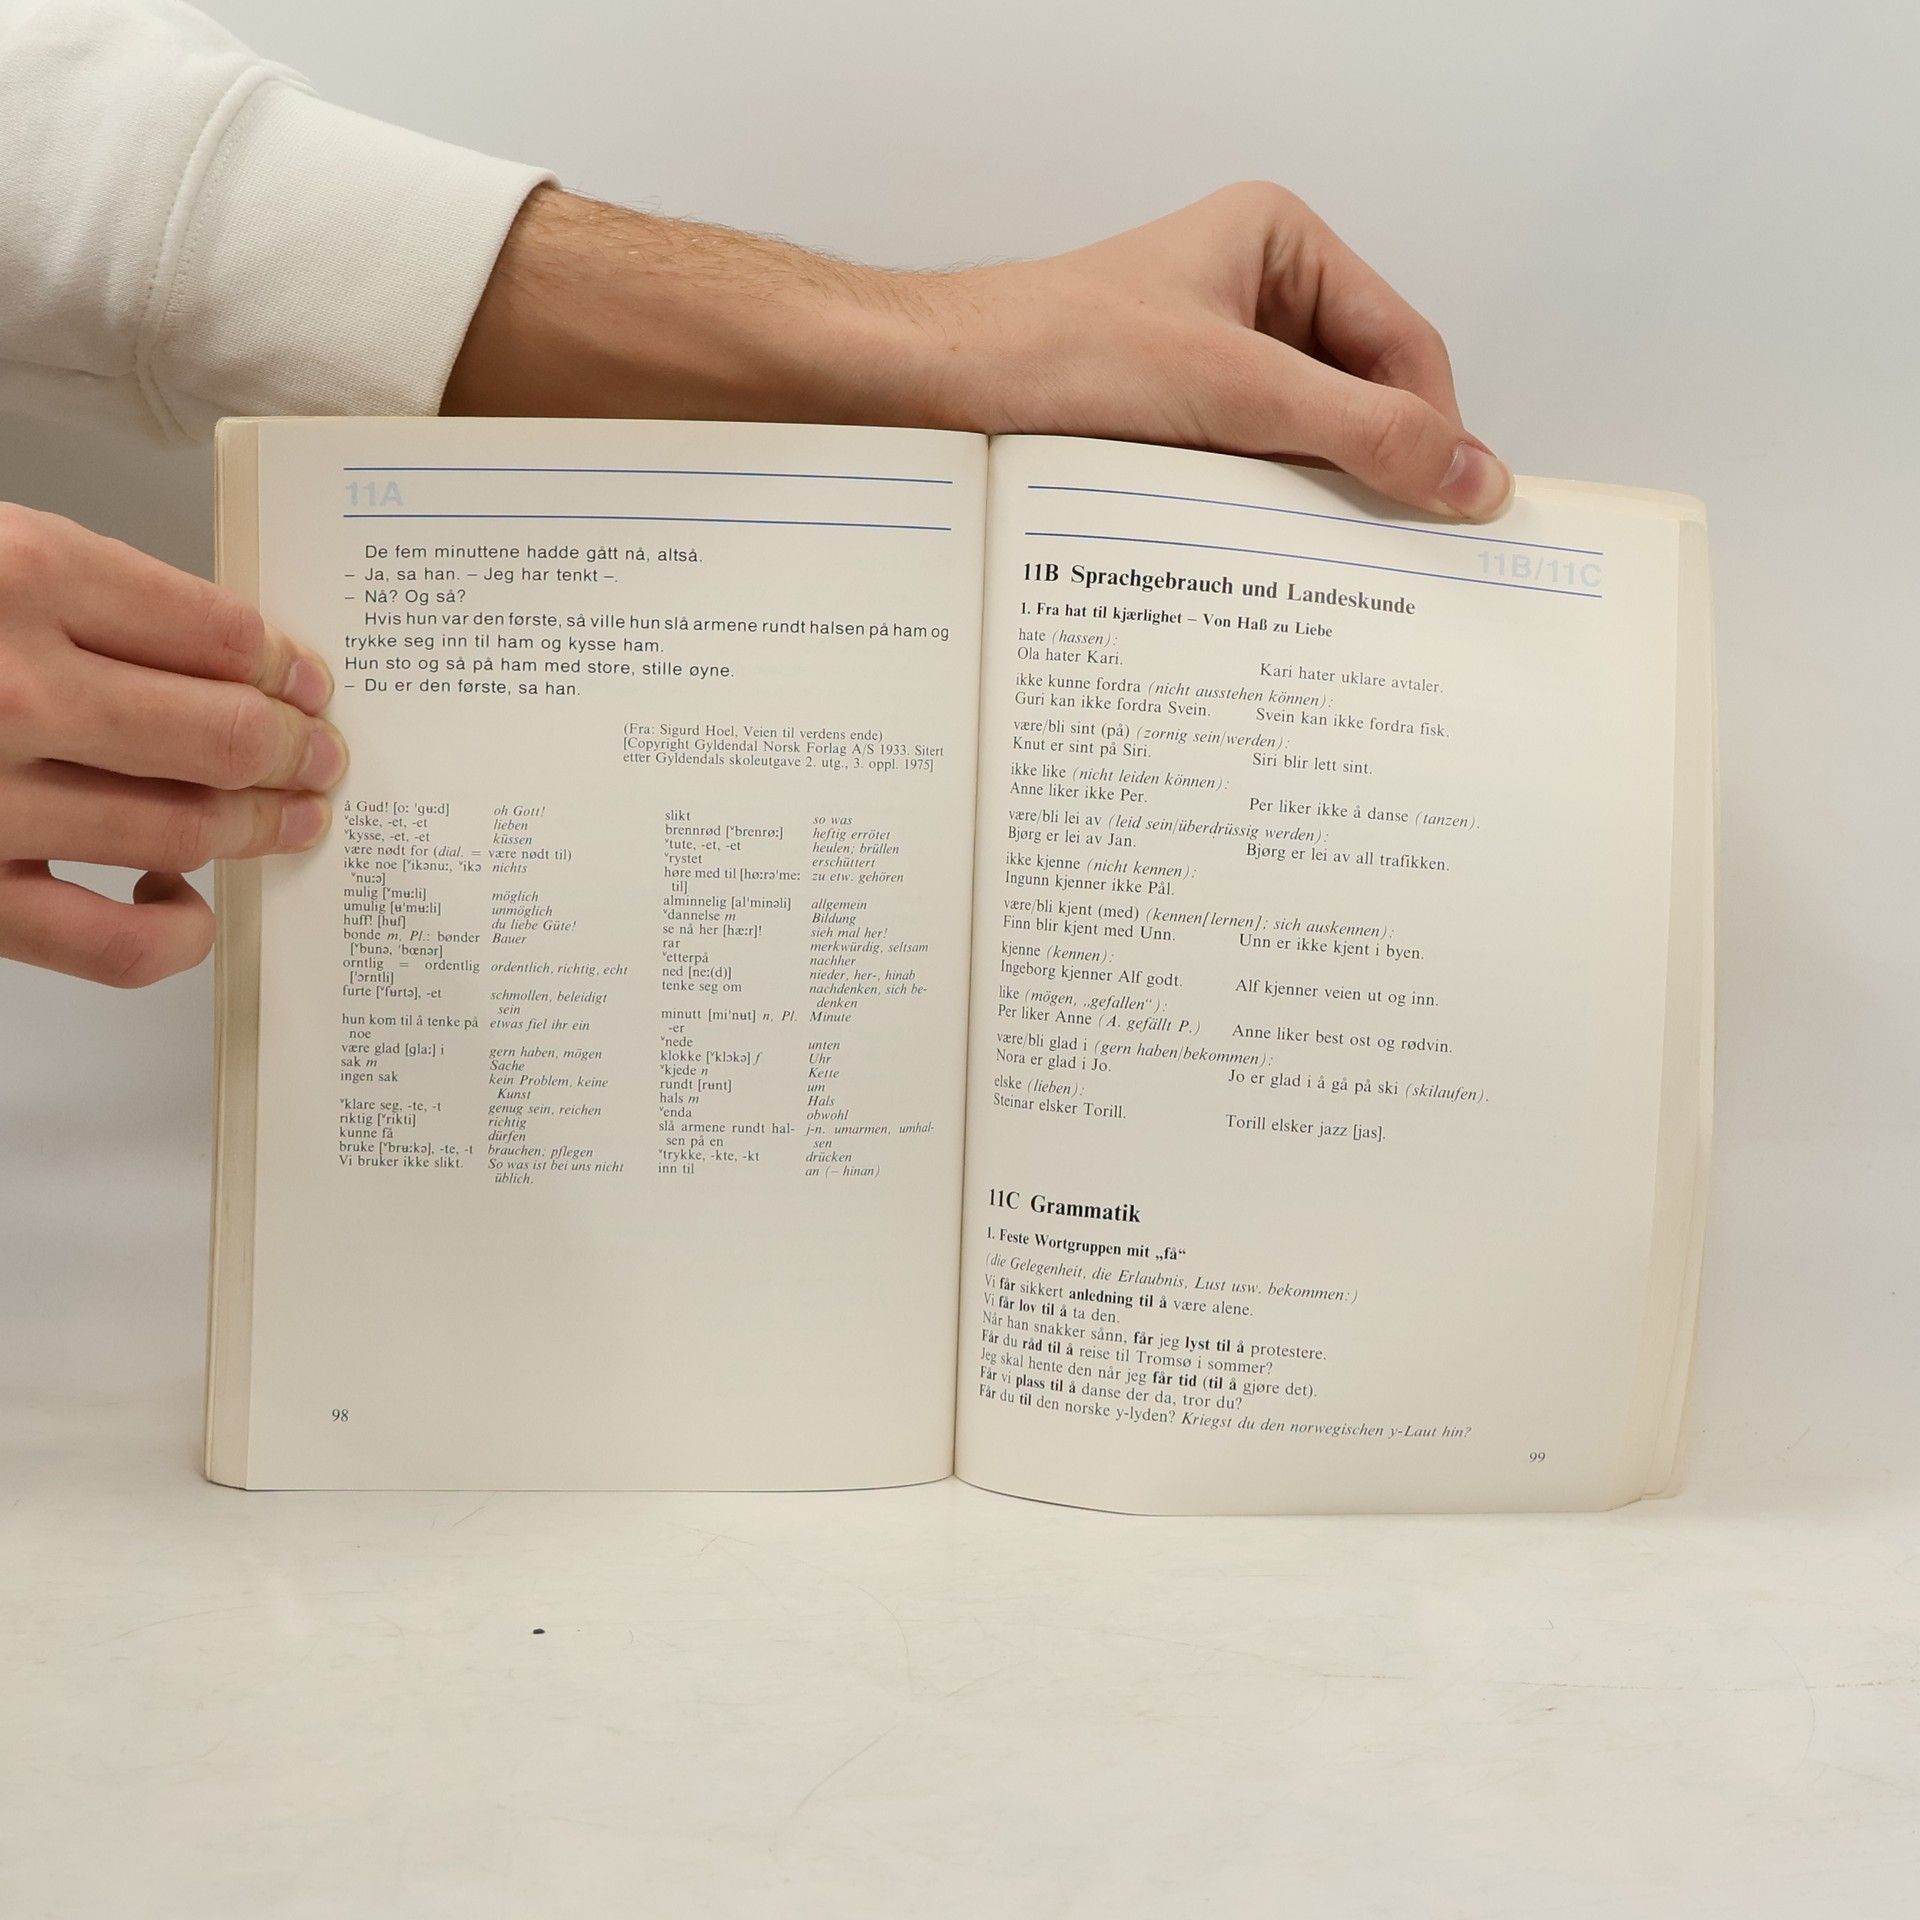 11A
De fem minuttene hadde gått nå, altså.
– Ja, sa han. – Jeg har tenkt –.
– Nå? Og så?
Hvis hun var den første, så ville hun slå armene rundt halsen på ham og
trykke seg inn til ham og kysse ham.
Hun sto og så på ham med store, stille øyne.
– Du er den første, sa han.
(Fra: Sigurd Hoel, Veien til verdens ende)
[Copyright Gyldendal Norsk Forlag A/S 1933. Sitert
etter Gyldendals skoleutgave 2. utg., 3. oppl. 1975]
å Gud! [o: 'gʉ:d] oh Gott!
ˇelske, -et, -et lieben
ˇkysse, -et, -et küssen
være nødt for (dial. = være nødt til)
ikke noe [ˇikənu:, ˇikə nichts
ˇnu:ə]
mulig [ˇmʉ:li] möglich
umulig [ʉ'mʉ:li] unmöglich
huff! [huf] du liebe Güte!
bonde m, Pl.: bønder Bauer
[ˇbunə, 'bœnər]
orntlig = ordentlig ordentlich, richtig, echt
['ɔrntli]
furte [ˇfʉrtə], -et schmollen, beleidigt
sein
hun kom til å tenke på etwas fiel ihr ein
noe
være glad [gla:] i gern haben, mögen
sak m Sache
ingen sak kein Problem, keine
Kunst
ˇklare seg, -te, -t genug sein, reichen
riktig [ˇrikti] richtig
kunne få dürfen
bruke [ˇbrʉ:kə], -te, -t brauchen; pflegen
Vi bruker ikke slikt. So was ist bei uns nicht
üblich.
slikt so was
brennrød [ˇbrenrø:] heftig errötet
ˇtute, -et, -et heulen; brüllen
ˇrystet erschüttert
høre med til [hø:rə'me: zu etw. gehören
til]
alminnelig [al'minəli] allgemein
ˇdannelse m Bildung
se nå her [hæ:r]! sieh mal her!
rar merkwürdig, seltsam
ˇetterpå nachher
ned [ne:(d)] nieder, her-, hinab
tenke seg om nachdenken, sich be-
denken
minutt [mi'nʉt] n, Pl. Minute
-er
ˇnede unten
klokke [ˇklɔkə] f Uhr
ˇkjede n Kette
rundt [rʉnt] um
hals m Hals
ˇenda obwohl
slå armene rundt hal- j-n. umarmen, umhal-
sen på en sen
ˇtrykke, -kte, -kt drücken
inn til an (– hinan)
98
11B/11C
11B Sprachgebrauch und Landeskunde
1. Fra hat til kjærlighet – Von Haß zu Liebe
hate (hassen):
Ola hater Kari. Kari hater uklare avtaler.
ikke kunne fordra (nicht ausstehen können):
Guri kan ikke fordra Svein. Svein kan ikke fordra fisk.
være/bli sint (på) (zornig sein/werden):
Knut er sint på Siri. Siri blir lett sint.
ikke like (nicht leiden können):
Anne liker ikke Per. Per liker ikke å danse (tanzen).
være/bli lei av (leid sein/überdrüssig werden):
Bjørg er lei av Jan. Bjørg er lei av all trafikken.
ikke kjenne (nicht kennen):
Ingunn kjenner ikke Pål.
være/bli kjent (med) (kennen[lernen]; sich auskennen):
Finn blir kjent med Unn. Unn er ikke kjent i byen.
kjenne (kennen):
Ingeborg kjenner Alf godt. Alf kjenner veien ut og inn.
like (mögen, „gefallen“):
Per liker Anne (A. gefällt P.) Anne liker best ost og rødvin.
være/bli glad i (gern haben/bekommen):
Nora er glad i Jo. Jo er glad i å gå på ski (skilaufen).
elske (lieben):
Steinar elsker Torill. Torill elsker jazz [jas].
11C Grammatik
1. Feste Wortgruppen mit „få“
(die Gelegenheit, die Erlaubnis, Lust usw. bekommen:)
Vi får sikkert anledning til å være alene.
Vi får lov til å ta den.
Når han snakker sånn, får jeg lyst til å protestere.
Får du råd til å reise til Tromsø i sommer?
Jeg skal hente den når jeg får tid (til å gjøre det).
Får vi plass til å danse der da, tror du?
Får du til den norske y-lyden? Kriegst du den norwegischen y-Laut hin?
99